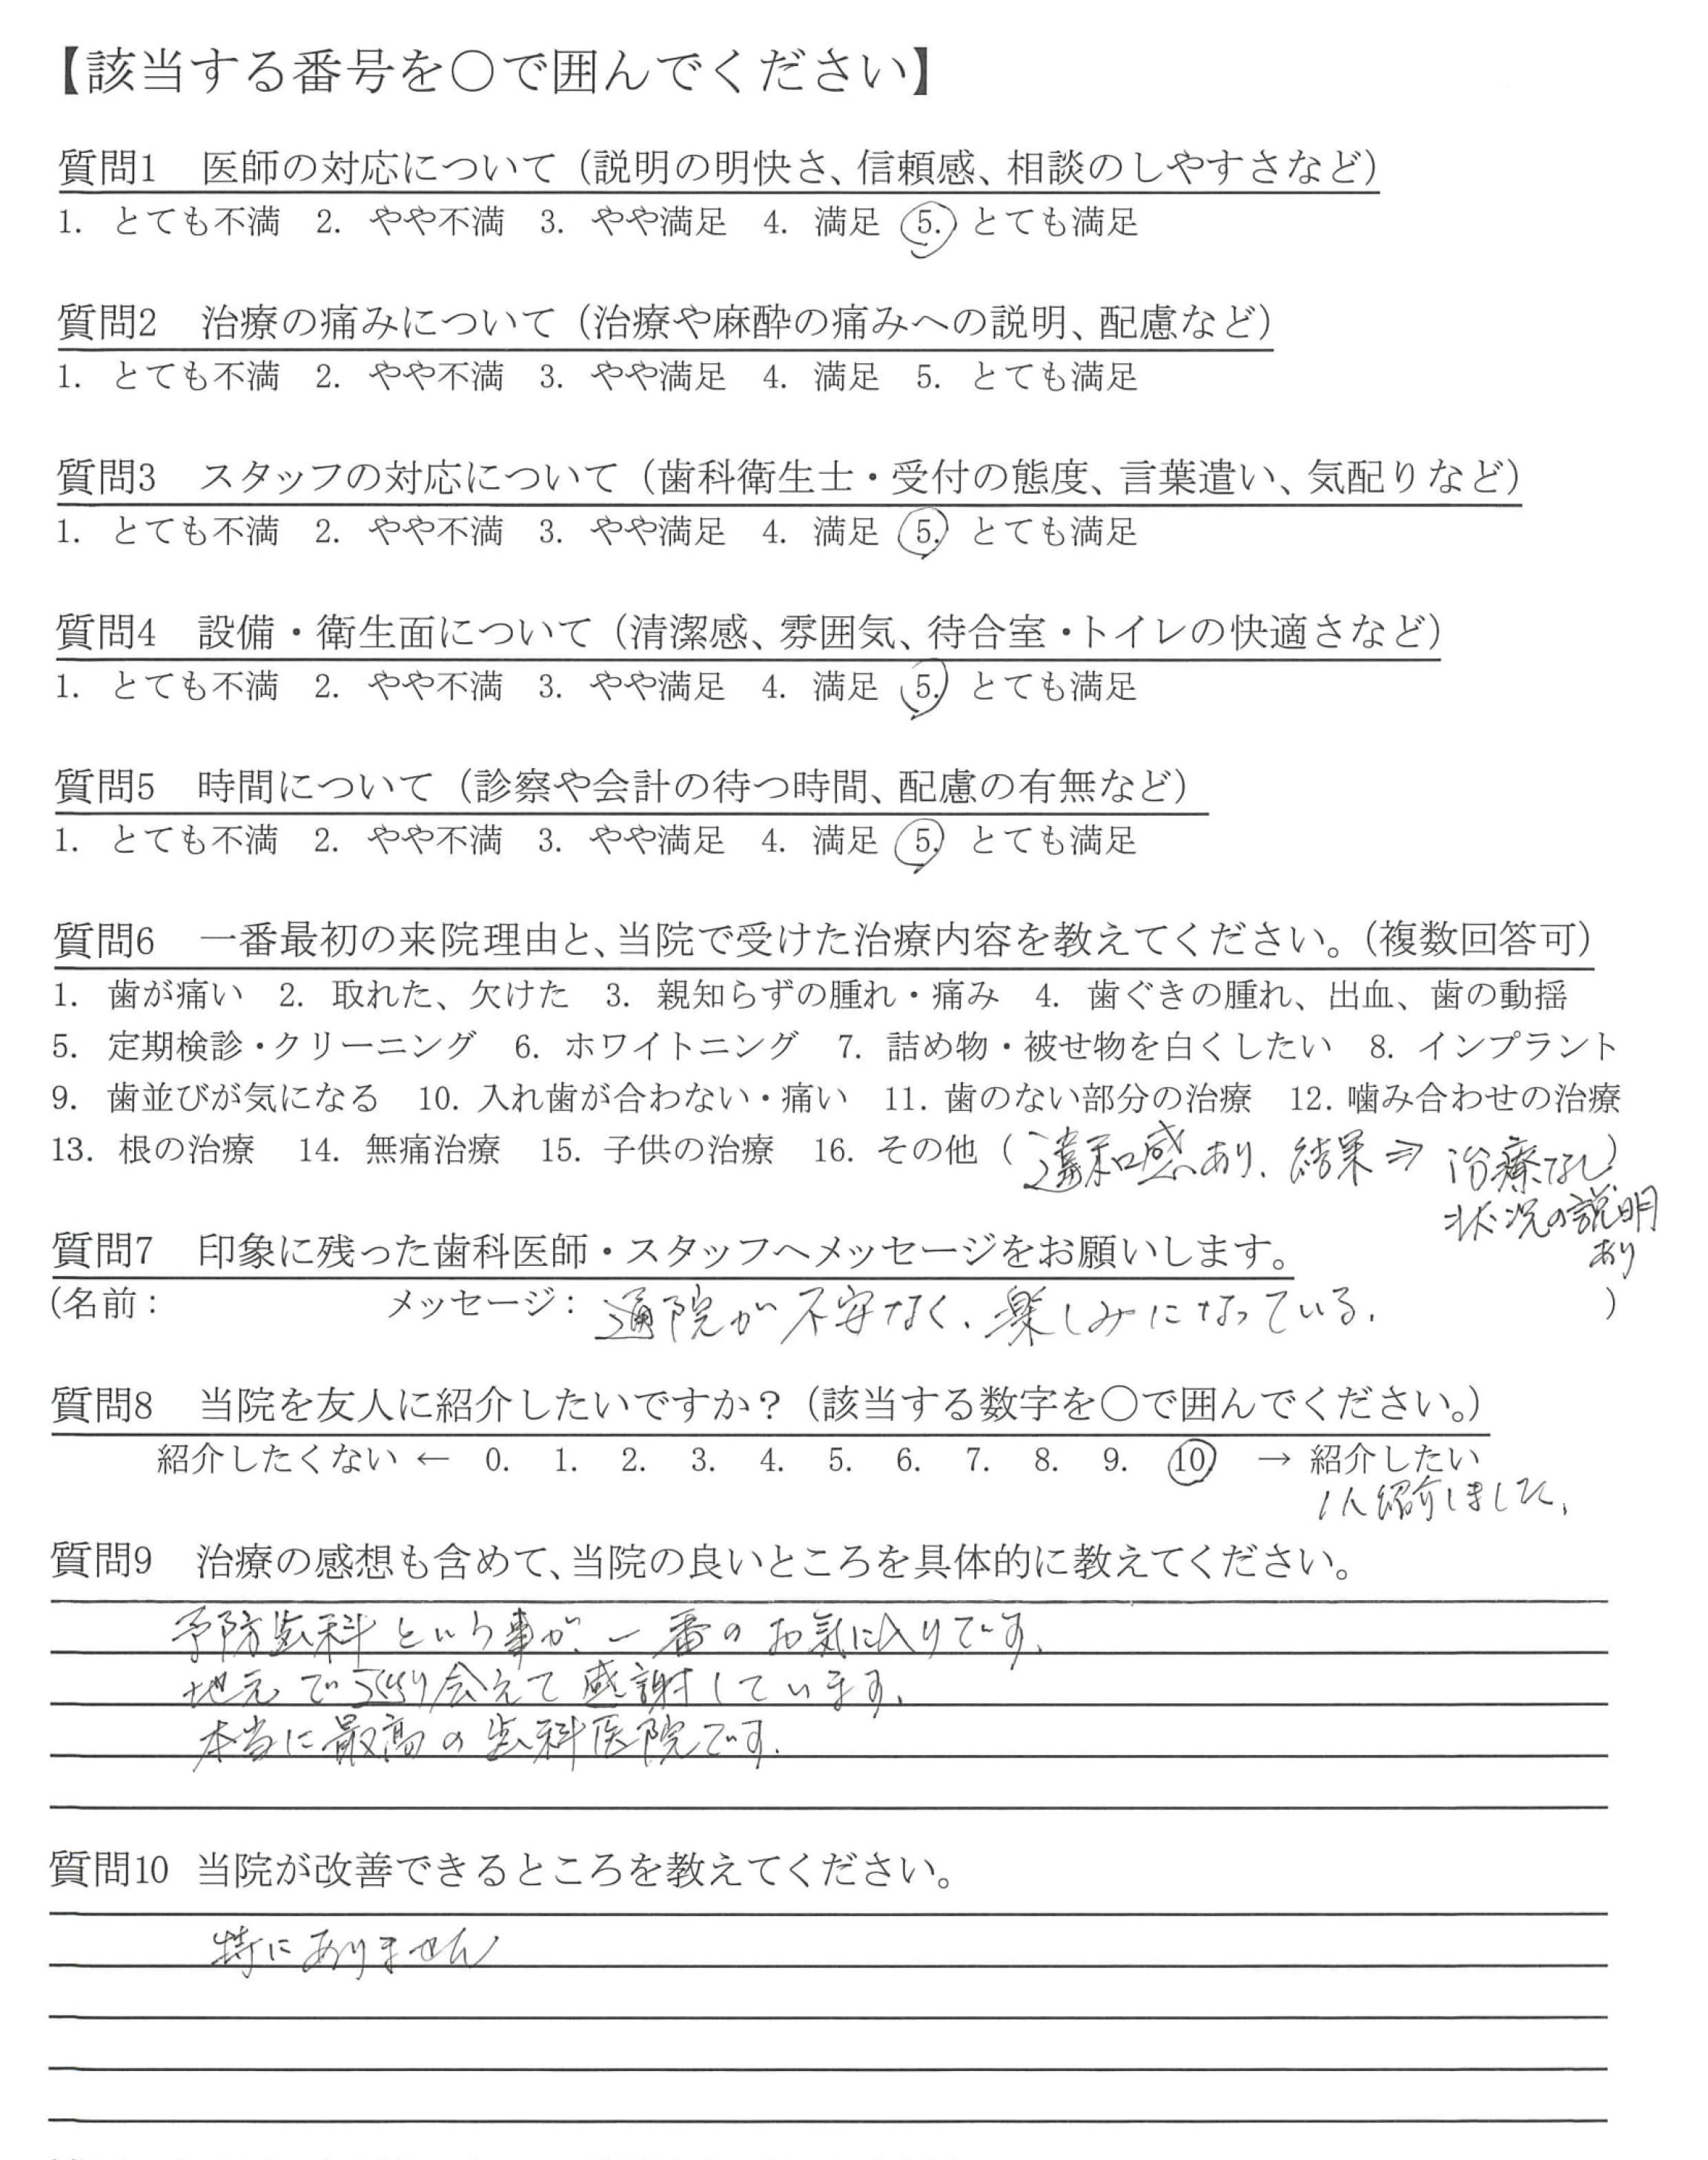 【該当する番号を〇で囲んでください】
質問1　医師の対応について（説明の明快さ、信頼感、相談のしやすさなど）
1. とても不満　2. やや不満　3. やや満足　4. 満足　5. とても満足
質問2　治療の痛みについて（治療や麻酔の痛みへの説明、配慮など）
1. とても不満　2. やや不満　3. やや満足　4. 満足　5. とても満足
質問3　スタッフの対応について（歯科衛生士・受付の態度、言葉遣い、気配りなど）
1. とても不満　2. やや不満　3. やや満足　4. 満足　5. とても満足
質問4　設備・衛生面について（清潔感、雰囲気、待合室・トイレの快適さなど）
1. とても不満　2. やや不満　3. やや満足　4. 満足　5. とても満足
質問5　時間について（診察や会計の待つ時間、配慮の有無など）
1. とても不満　2. やや不満　3. やや満足　4. 満足　5. とても満足
質問6　一番最初の来院理由と、当院で受けた治療内容を教えてください。（複数回答可）
1. 歯が痛い　2. 取れた、欠けた　3. 親知らずの腫れ・痛み　4. 歯ぐきの腫れ、出血、歯の動揺
5. 定期検診・クリーニング　6. ホワイトニング　7. 詰め物・被せ物を白くしたい　8. インプラント
9. 歯並びが気になる　10. 入れ歯が合わない・痛い　11. 歯のない部分の治療　12. 噛み合わせの治療
13. 根の治療　14. 無痛治療　15. 子供の治療　16. その他（違和感あり、結果⇒治療なし）
状況の説明
あり
質問7　印象に残った歯科医師・スタッフへメッセージをお願いします。
（名前：　メッセージ：通院が不安なく、楽しみになっている。）
質問8　当院を友人に紹介したいですか？（該当する数字を〇で囲んでください。）
紹介したくない ← 0. 1. 2. 3. 4. 5. 6. 7. 8. 9. 10. → 紹介したい
1人紹介しました。
質問9　治療の感想も含めて、当院の良いところを具体的に教えてください。
予防歯科という事が、一番のお気に入りです。
地元で会えて感謝しています。
本当に最高の歯科医院です。
質問10 当院が改善できるところを教えてください。
特にありません